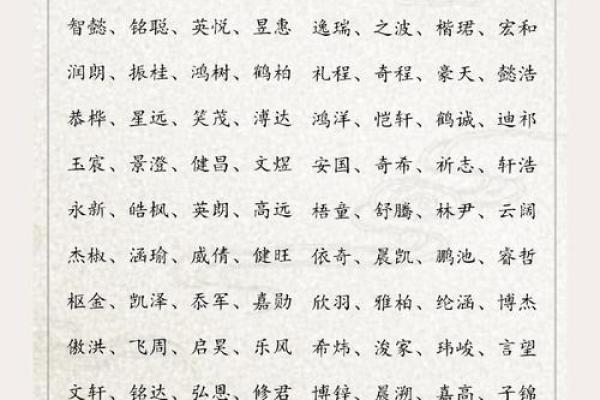 智懿、铭聪、英悦、昱惠 逸瑞、之波、楷珺、宏和
润朗、振桂、鸿树、鹤柏 礼程、奇程、豪天、懿浩
恭桦、星远、笑茂、溥达 鸿洋、恺轩、鹤诚、迪祁
玉宸、景澄、健昌、文煜 安国、奇希、祈志、轩浩
永新、皓枫、英朗、高远 梧童、舒腾、林尹、云阔
杰椒、涵瑜、威倩、健旺 依奇、晨凯、鹏池、睿哲
枢金、凯泽、忝军、嘉勋 欣羽、雅柏、纶涵、博杰
傲洪、飞周、启昊、乐风 希炜、浚家、玮峻、言望
文轩、铭达、弘恩、修君 博锌、晨溯、嘉高、子锦